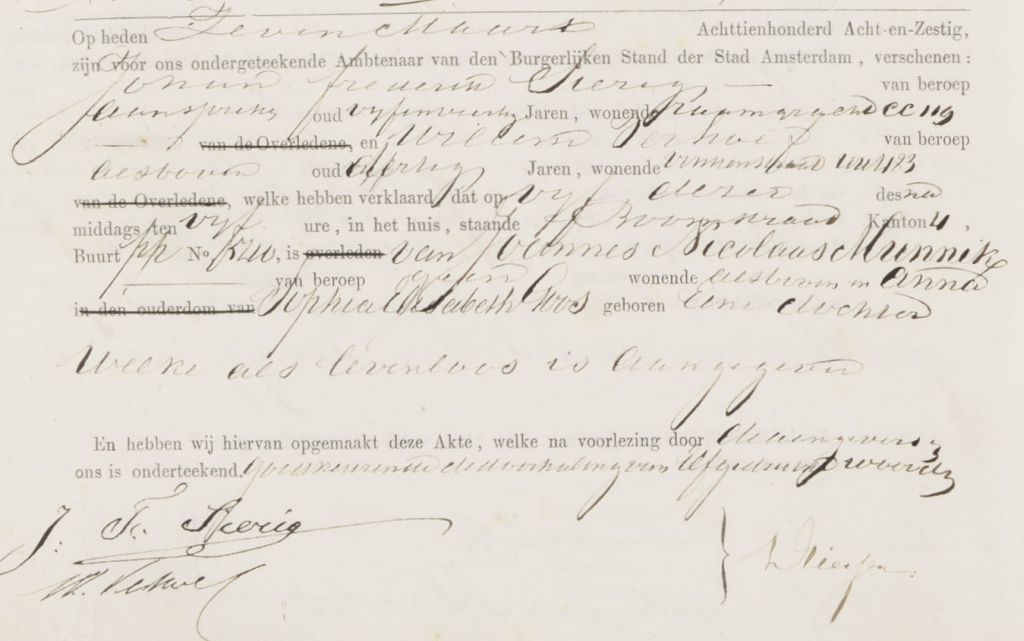 Op heden Zeven Maart Achttienhonderd Acht-en-Zestig,
zijn voor ons ondergeteekende Ambtenaar van den Burgerlijken Stand der Stad Amsterdam, verschenen:
Johan Frederik Sierig van beroep
Aanspreker oud vyfenveertig Jaren, wonende Raamgracht CC 119
van de Overledene, en Willem Verhoef van beroep
als boven oud dertig Jaren, wonende Vinkenstraat 183
van de Overledene, welke hebben verklaard, dat op vyf dezer des na
middags ten vyf ure, in het huis, staande Boomstraat Kanton 4,
Buurt pp No. 540, is overleden van Joannes Nicolaas Munnik
van beroep geen wonende als boven en Anna
in den ouderdom van Sophia Elisabeth Goos geboren Eene dochter
Welke als levenloos is aangegeven
En hebben wij hiervan opgemaakt deze Akte, welke na voorlezing door de aangevers en
ons is onderteekend. Goedkeurende de doorhaling van Elf gedrukte woorden
J: Fr. Sierig
W. Verhoef